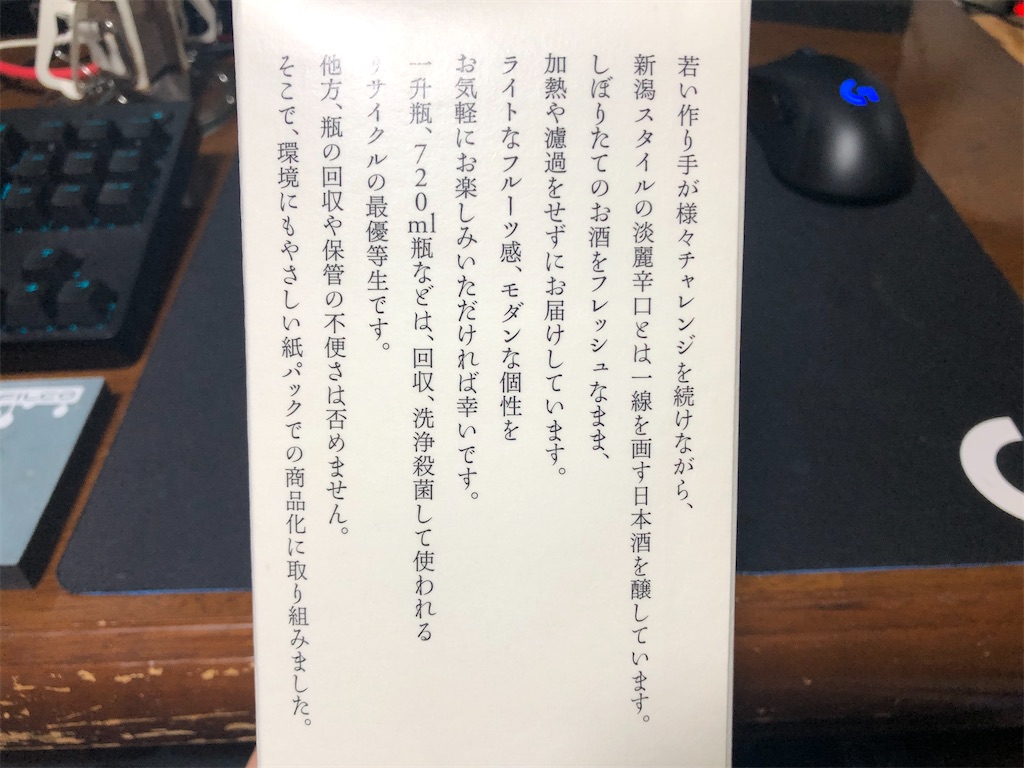 若い作り手が様々チャレンジを続けながら、
新潟スタイルの淡麗辛口とは一線を画す日本酒を醸しています。
しぼりたてのお酒をフレッシュなまま、
加熱や濾過をせずにお届けしています。
ライトなフルーツ感、モダンな個性を
お気軽にお楽しみいただければ幸いです。
一升瓶、720ml瓶などは、回収、洗浄殺菌して使われる
リサイクルの最優等生です。
他方、瓶の回収や保管の不便さは否めません。
そこで、環境にもやさしい紙パックでの商品化に取り組みました。